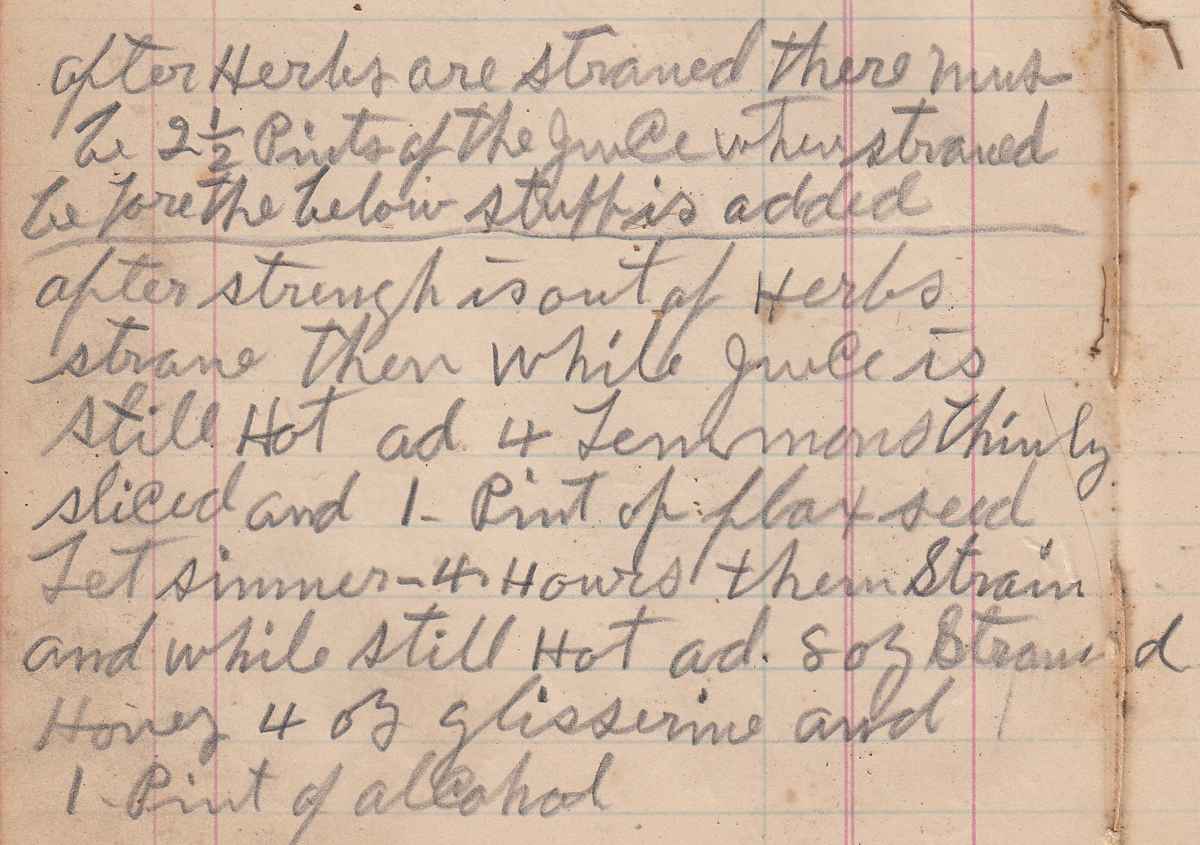 after Herbs are straned there mus
be 2 1/2 Pints of the Juice when straned
before the below stuff is added
after strengh is out of Herbs
strane then while Juice is
still Hot ad 4 Lemmons thinly
sliced and 1 - Pint of flax seed
Let simmer - 4 Hours then Strain
and while still Hot ad. 8 oz Straned
Honey 4 oz glisserine and
1 - Pint of alcohol